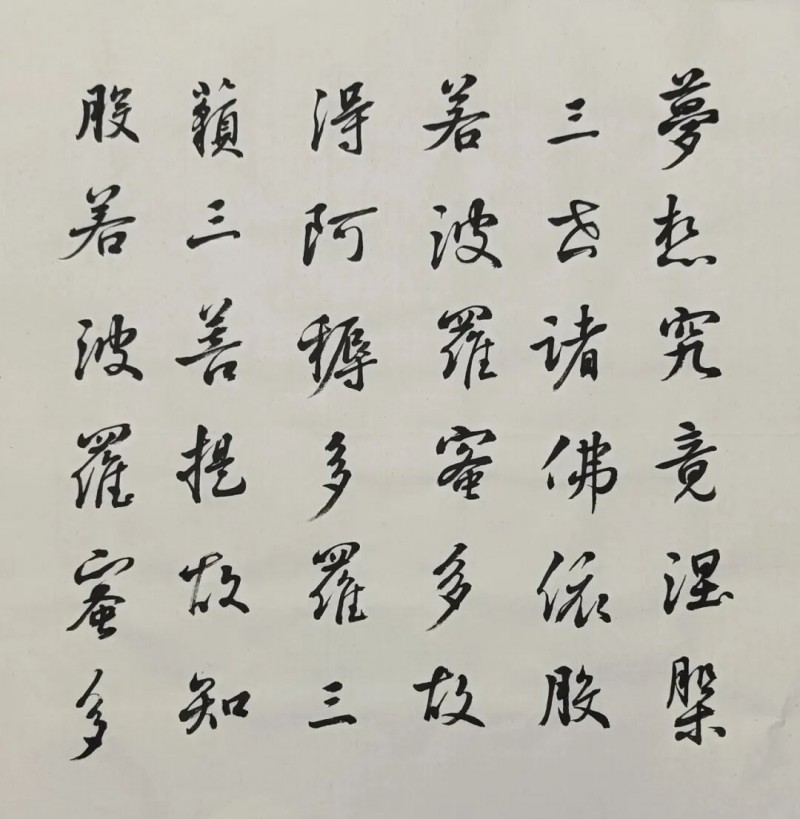 夢想究竟涅槃
三世諸佛依般
若波羅蜜多故
得阿耨多羅三
藐三菩提故知
般若波羅蜜多